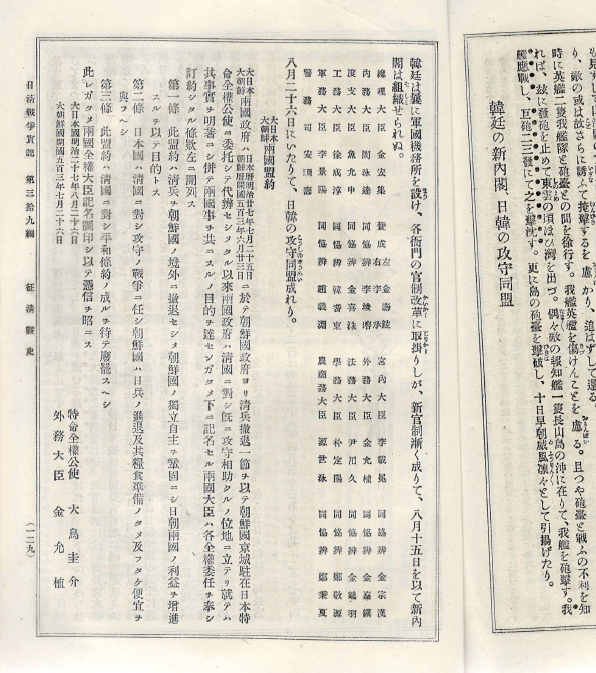 り、敵の或は故さらに誘ふて掩撃するを慮かり、追はずして還る。
時に英艦二隻我艦隊と砲臺との間を徐行す。我艦英艦を傷けんことを慮る。且つや砲臺と戰ふの不利を知
れば、茲に發砲を止めて東雲の頃ほひ灣を出づ。偶々敵の報知艦一隻長山島の沖に在りて、我艦を砲撃す。我
艦應戰し、巨砲二三發にて之を擊沈す。更に島の砲臺を擊破し、十日早朝威風凛々として引揚げたり。
韓廷の新內閣、日韓の攻守同盟
韓廷は曩に軍國機務所を設け、各衙門の官制改革に取掛りしが、新官制漸く成りて、八月十五日を以て新內
閣は組織せられぬ。
總理大臣 金宏集
宮內大臣 李載冕 同協辨 金宗漢
內務大臣 閔泳達
外務大臣 金允植 同協辨 金嘉鎭
度支大臣 魚允中 同協辨 金喜洙 法務大臣 尹用久 同協辨 金鶴羽
工務大臣 徐成淳 同協辨 韓耆東 學務大臣 朴定陽 同協辨 鄭敬源
軍務大臣 李景陽 同協辨 趙羲淵 農商務大臣 源世泳 同協辨 鄭秉夏
警務司 安駉壽
八月二十六日にいたりて、日韓の攻守同盟成れり。
大日本大朝鮮兩國盟約
大日本大朝鮮兩國政府ハ日本曆明治廿七年七月二十五日朝鮮曆開國五百三年六月廿三日ニ於テ朝鮮國政府ヨリ淸兵撤退一節ヲ以テ朝鮮國京城駐在日本特
命全權公使ニ委托シテ代辨セシメタル以來兩國政府ハ淸國ニ對シ旣ニ攻守相助クルノ位地ニ立テリ就テハ
其事實ヲ明著ニシ併テ兩國事ヲ共ニスルノ目的ヲ達センガタメ下ニ記名セル兩國大臣ハ各全權委任ヲ奉シ
訂約シタル條欵左ニ開列ス
第一條 此盟約ハ淸兵ヲ朝鮮國ノ境外ニ撤退セシメ朝鮮國ノ獨立自主ヲ鞏固ニシ日朝兩國ノ利益ヲ增進
スルヲ以テ目的トス
第二條 日本國ハ淸國ニ對シ攻守ノ戰爭ニ任シ朝鮮國ハ日兵ノ進退及其糧食準備ノタメ及フタケ便宜ヲ
與フヘシ
第三條 此盟約ハ淸國ニ對シ平和條約ノ成ルヲ待テ廢罷スヘシ
此レガタメ兩國全權大臣記名調印シ以テ憑信ヲ昭ニス
大日本國明治二十七年八月二十六日
大朝鮮國開國五百三年七月二十六日
特命全權公使 大鳥圭介
外務大臣 金允植
日淸戰爭實記 第三拾九編 征淸戰史 (一二九)